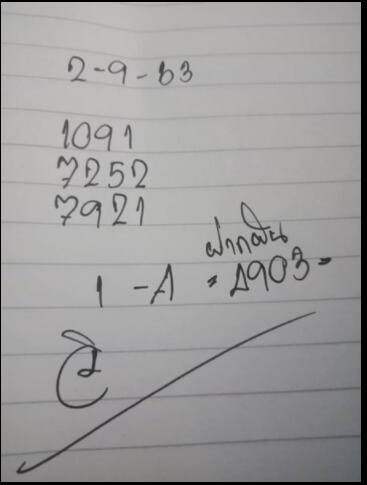 2-9-63
1091
7252
7921
ฝากฝัน
1 -A = 1903 =